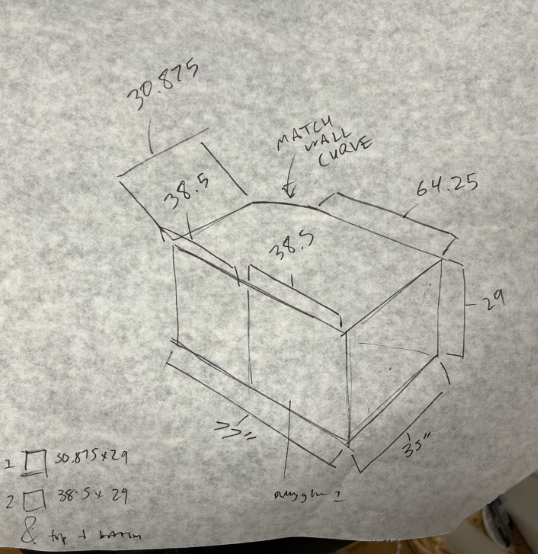 30.875
MATCH
WALL
CURVE
38.5
64.25
38.5
29
77"
35"
1 30.875 x 29
2 38.5 x 29
& top + bottom